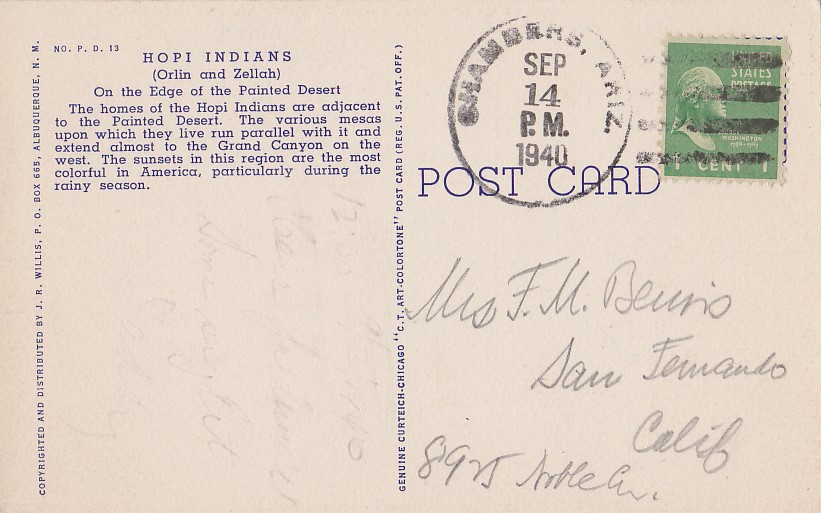 NO. P. D. 13
HOPI INDIANS
(Orlin and Zellah)
On the Edge of the Painted Desert
The homes of the Hopi Indians are adjacent
to the Painted Desert. The various mesas
upon which they live run parallel with it and
extend almost to the Grand Canyon on the
west. The sunsets in this region are the most
colorful in America, particularly during the
rainy season.
COPYRIGHTED AND DISTRIBUTED BY J. R. WILLIS, P. O. BOX 665, ALBUQUERQUE, N. M.
GENUINE CURTEICH-CHICAGO "C.T. ART-COLORTONE" POST CARD (REG. U.S. PAT. OFF.)
CHAMBERS, ARIZ.
SEP
14
P.M.
1940
UNITED
STATES
POSTAGE
WASHINGTON
1789-1797
1 CENT 1
POST CARD
Mrs F. M. Bemis
San Fernando
Calif
8925 Noble Av.